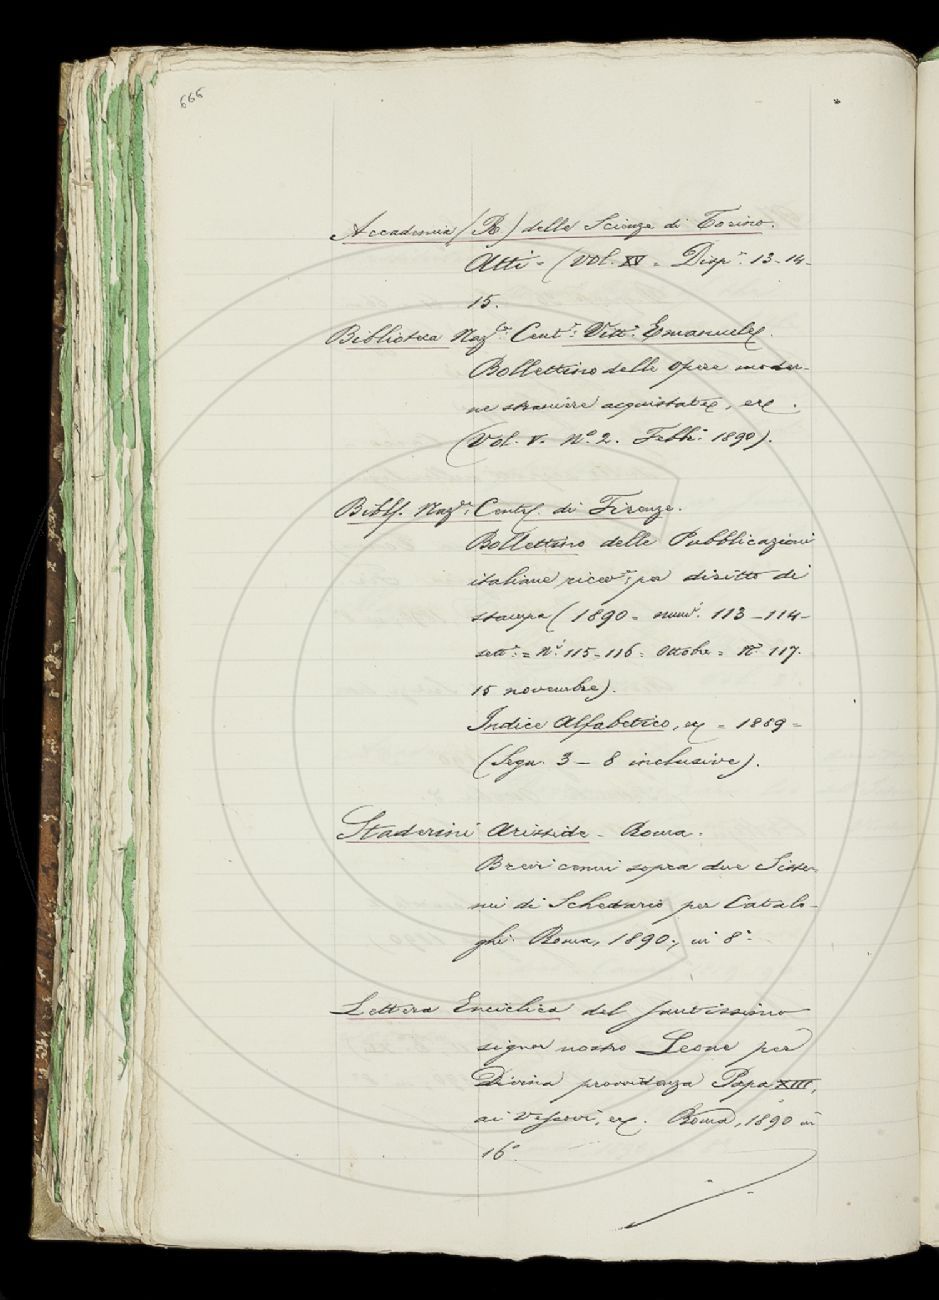 666
Accademia (R.) delle Scienze di Torino.
Atti = (Vol. XV = Disp.e 13-14-
15.
Biblioteca Naz.le Cent.e Vitt. Emanuele.
Bollettino delle opere moder-
ne straniere acquistate, ecc.
(Vol. V. N.º 2. Febb. 1890).
Bibl. Naz.le Cent. di Firenze.
Bollettino delle Pubblicazioni
italiane ricev.e per diritto di
stampa (1890 = num.i 113-114-
sett.e = N.i 115-116. Ottobre = N.º 117.
15 novembre).
Indice Alfabetico, ec = 1889 =
(Segn. 3 - 8 inclusive).
Staderini Aristide - Roma.
Brevi cenni sopra due Siste-
mi di Schedario per Catalo-
ghi. Roma, 1890, in 8º
Lettera Enciclica del santissimo
signor nostro Leone per
Divina provvidenza Papa XIII,
ai Vescovi, ec. Roma, 1890 in
16º